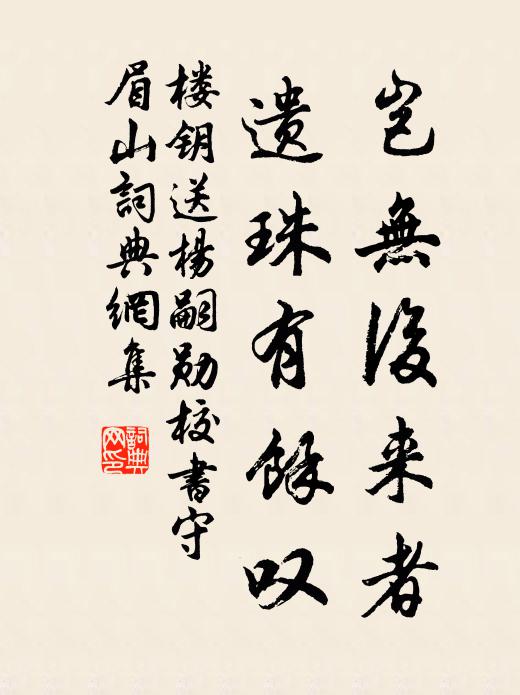 岂無後来者
遗珠有餘叹
楼钥送杨嗣勋校书守
眉山詞典網集
詞典
网印